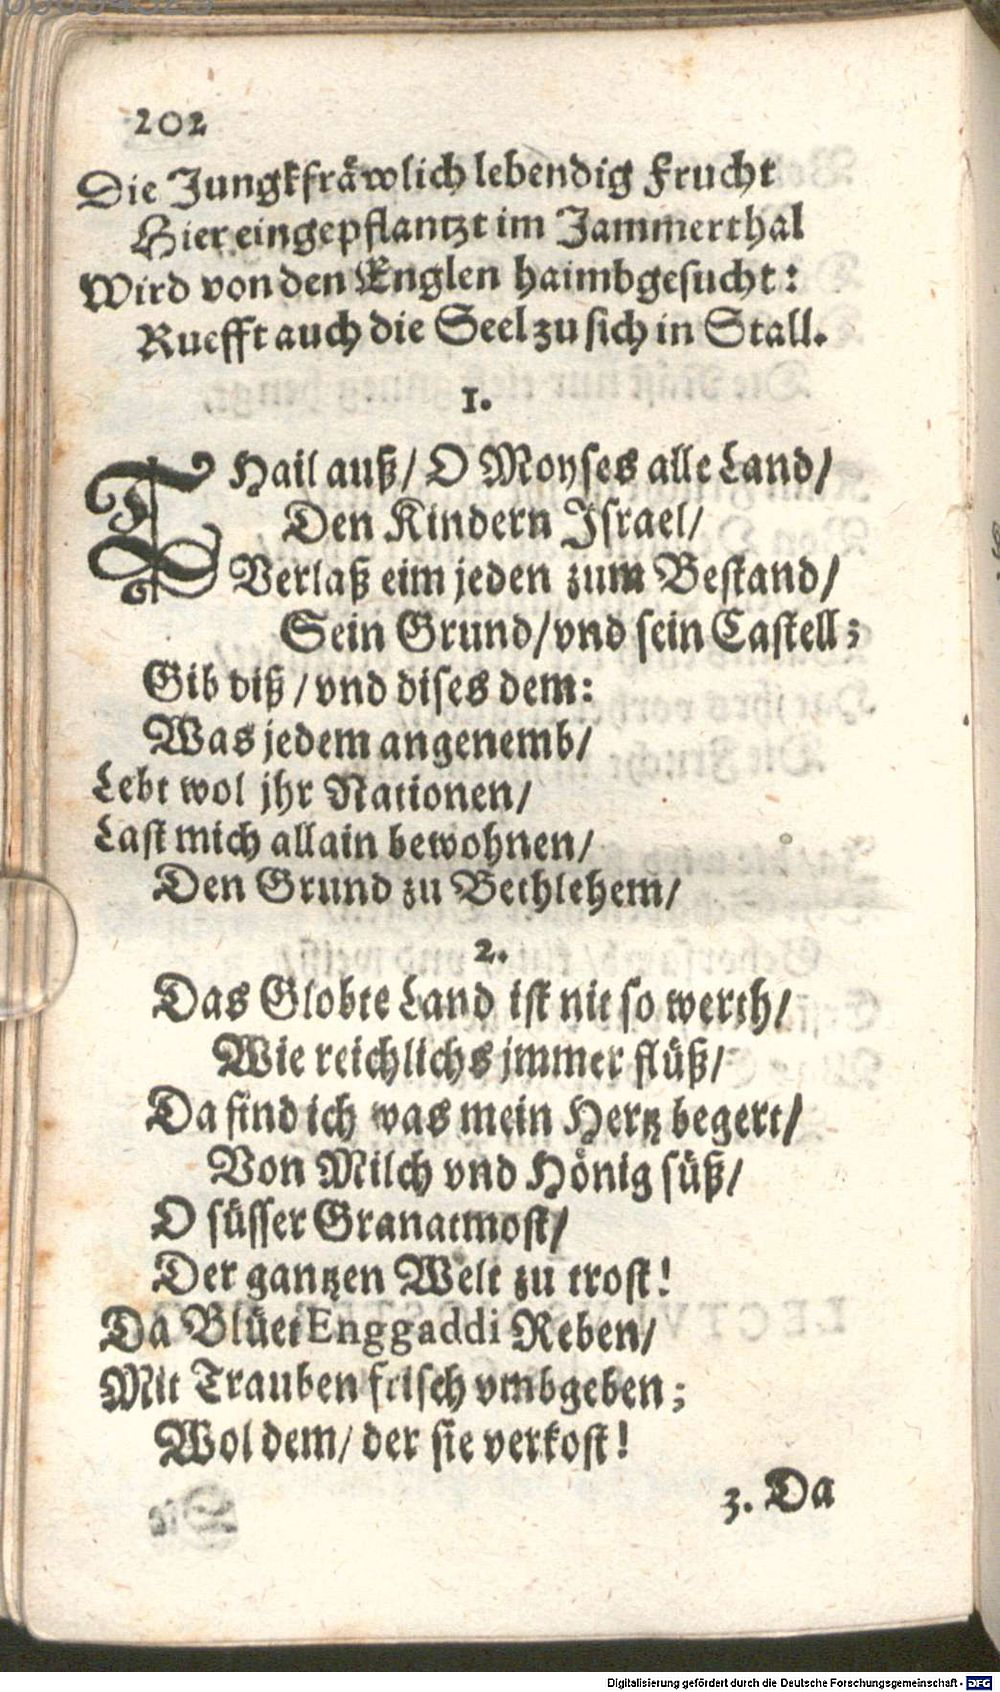 202
Die Jungkfräwlich lebendig Frucht
Hier eingepflantzt im Jammerthal
Wird von den Englen haimbgesucht:
Ruefft auch die Seel zu sich in Stall.
1.
THail auß/ O Moyses alle Land/
Den Kindern Israel/
Verlaß eim jeden zum Bestand/
Sein Grund/ vnd sein Castell;
Gib diß / vnd dises dem:
Was jedem angenemb/
Lebt wol jhr Nationen/
Last mich allain bewohnen/
Den Grund zu Bethlehem/
2.
Das Globte Land ist nit so werth/
Wie reichlichs jmmer flüß/
Da find ich was mein Hertz begert/
Von Milch vnd Hönig süß/
O süsser Granatmost/
Der gantzen Welt zu trost!
Da Blüet Enggaddi Reben/
Mit Trauben frisch vmbgeben;
Wol dem/ der sie verkost!
3. Da
Digitalisierung gefördert durch die Deutsche Forschungsgemeinschaft - DFG